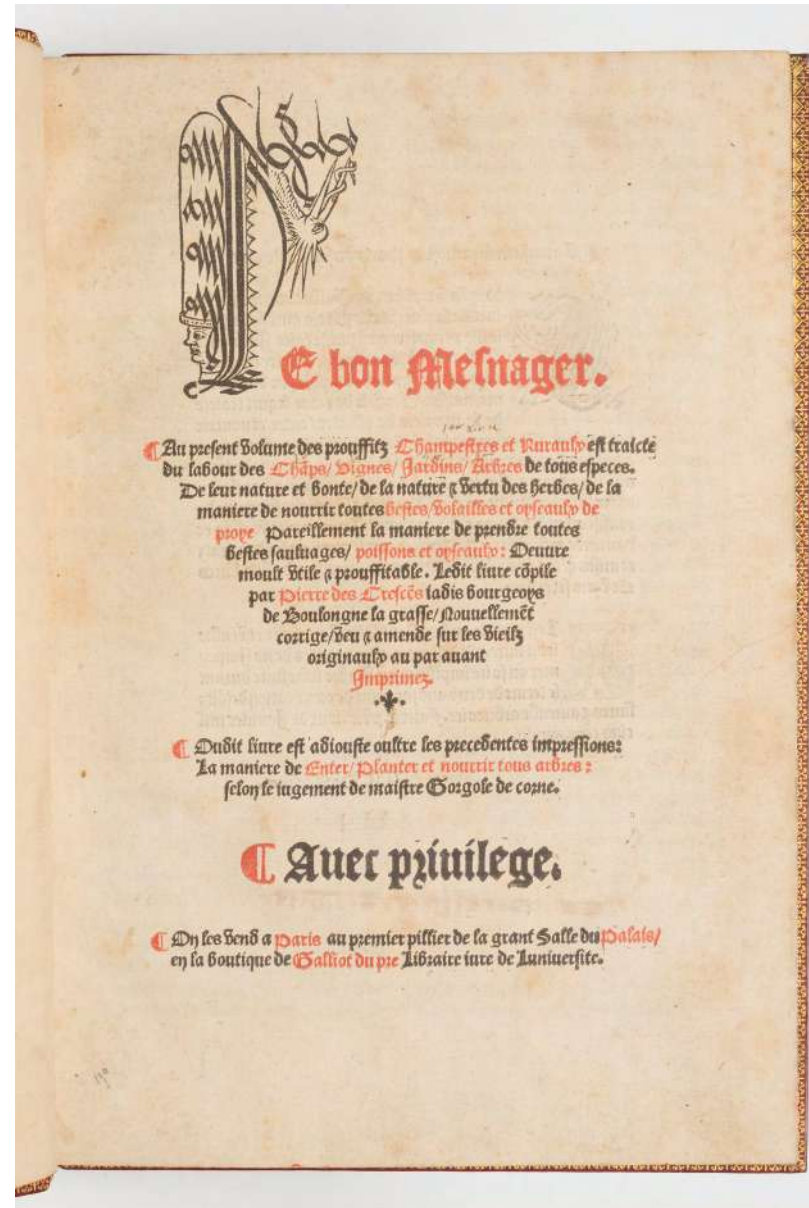 LE bon Mesnager.
¶ Au present volume des prouffitz Champestres et Ruraulx est traicte
du labour des Chãps/ vignes/ Jardins/ Arbres de tous especes.
De leur nature et bonte/ de la nature ⁊ vertu des herbes/ de la
maniere de nourrir toutes bestes/ volailles et oyseaulx de
proye Pareillement la maniere de prendre toutes
bestes sauluages/ poissons et oyseaulx: Oeuure
moult vtile ⁊ prouffitable. Ledit liure cõpile
par Pierre des Crescẽs iadis bourgeoys
de Boulongne la grasse/ Nouuellemẽt
corrige/ veu ⁊ amende sur les vieilz
originaulx au par auant
Imprimez.
¶ Oudit liure est adiouste oultre les precedentes impressions:
La maniere de Enter/ Planter et nourrir tous arbres:
selon le iugement de maistre Gorgole de corne.
¶ Auec priuilege.
¶ On les vend a Paris au premier pillier de la grant Salle du Palais/
en la boutique de Galliot du pre Libraire iure de Luniuersite.